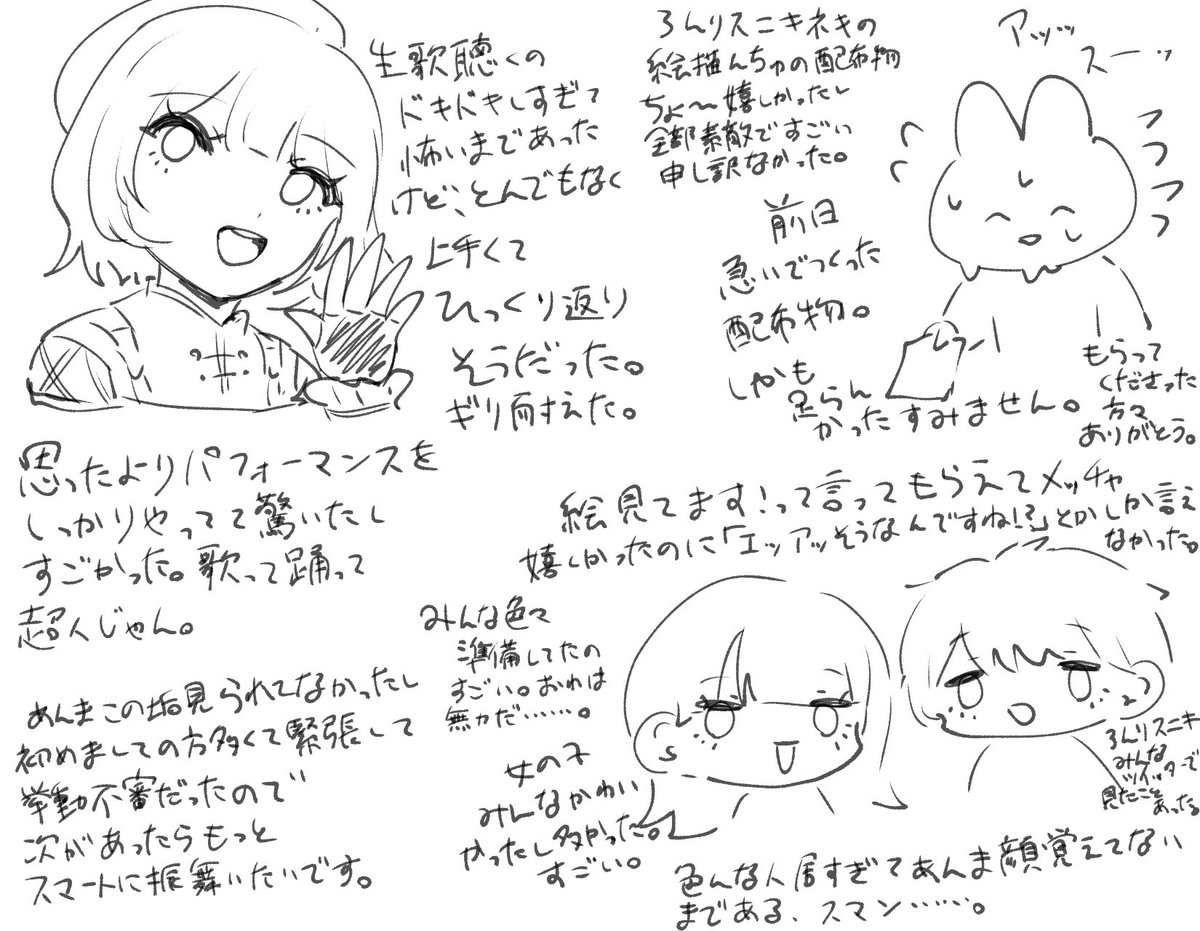 生歌聴くの
ドキドキしすぎて
怖いまであった
けど、とんでもなく
上手くて
ひっくり返り
そうだった。
ギリ耐えた。
ろんリスニキネキの
絵描んちゅの配布物
ちょ〜嬉しかったし
全部素敵ですごい
申し訳なかった。
アッッッ
スーーッ
前日
急いでつくった
配布物。
しかも
足らん
かったすみません。
もらって
くださった
方々
ありがとう。
思ったよりパフォーマンスを
しっかりやってて驚いたし
すごかった。歌って踊って
超人じゃん。
絵見てます!って言ってもらえてメッチャ
嬉しかったのに「エッアッそうなんですね!?」とかしか言え
なかった。
みんな色々
準備してたの
すごい。おれは
無力だ……。
あんまこの垢見られてなかったし
初めましての方多くて緊張して
挙動不審だったので
次があったらもっと
スマートに振舞いたいです。
女の子
みんなかわい
かったし多かった。
すごい。
ろんリスニキ
みんな
ツイッターで
見たこと
あった
色んな人居すぎてあんま顔覚えてない
まである、スマン……。